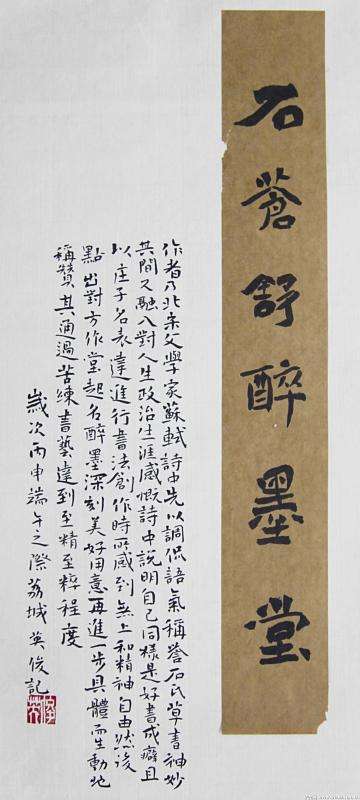 石蒼舒醉墨堂
作者乃北宋文學家蘇軾詩中先以調侃語氣稱譽石氏草書神妙
其間又融入對人生政治生涯感慨詩中説明自己同樣是好書成癖且
以庄子名表達進行書法創作時所感到無上和精神自由然後
點出對方作堂起名醉墨深刻美好用意再進一步具體而生動地
稱贊其通過苦練書藝達到至精至粹程度
歲次丙申端午之際荔城英俊記